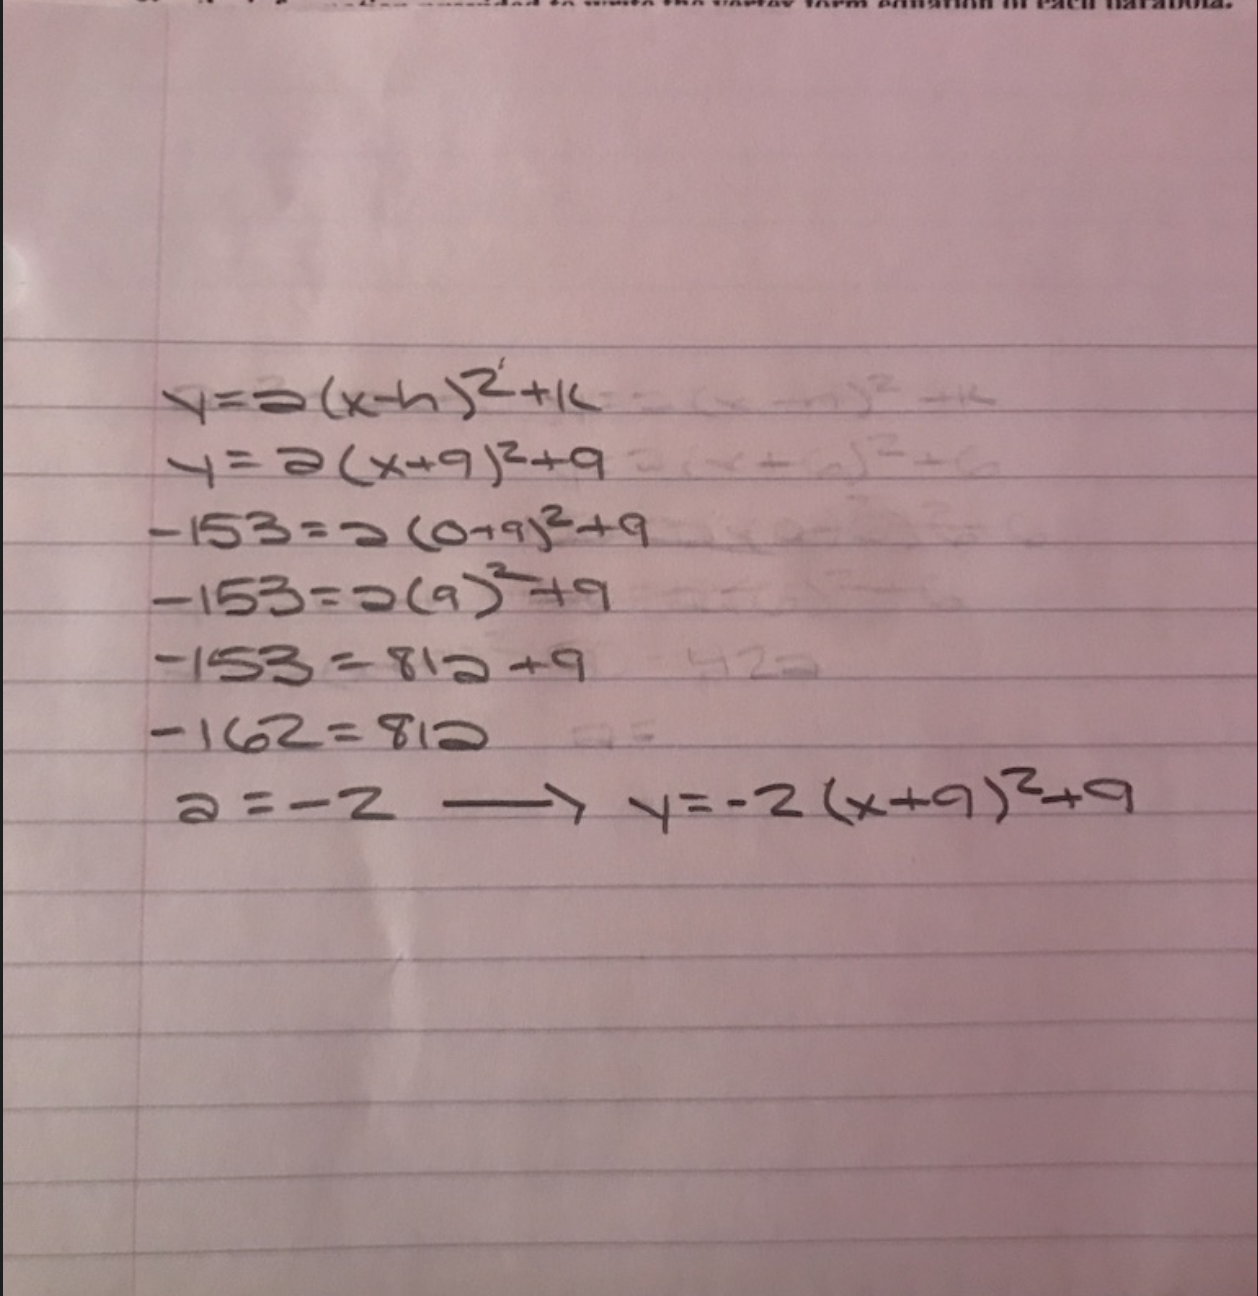 to write the vertex form equation of each parabola.
y=a(x-h)²+k
y=a(x+9)²+9
-153=a(0+9)²+9
-153=a(9)²+9
-153=81a+9
-162=81a
a=-2 → y=-2(x+9)²+9